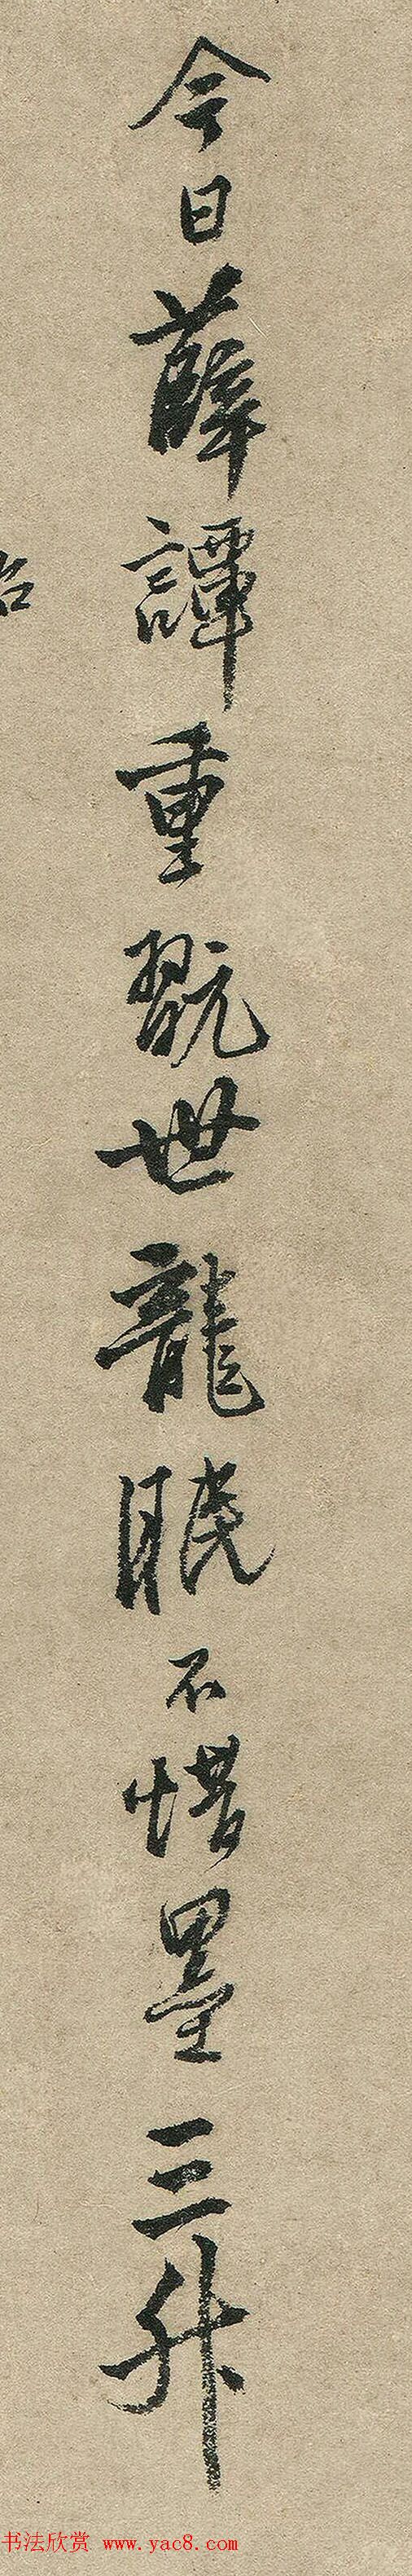 今日薛譚重翫世龍眠不惜墨三升
书法欣赏 www.yac8.com